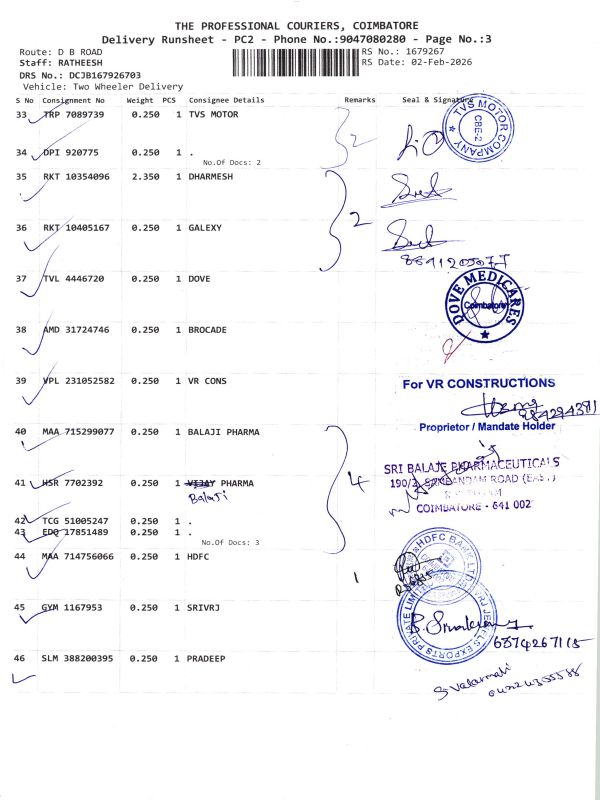 THE PROFESSIONAL COURIERS, COIMBATORE
Delivery Runsheet - PC2 - Phone No.:9047080280 - Page No.:3
Route: D B ROAD
RS No.: 1679267
Staff: RATHEESH
RS Date: 02-Feb-2026
DRS No.: DCJB167926703
Vehicle: Two Wheeler Delivery
S No Consignment No Weight PCS Consignee Details Remarks Seal & Signature
33 TRP 7089739 0.250 1 TVS MOTOR
TVS MOTOR COMPANY
CBE-2
2
34 DPI 920775 0.250 1 .
No.Of Docs: 2
35 RKT 10354096 2.350 1 DHARMESH
2
36 RKT 10405167 0.250 1 GALEXY
37 TVL 4446720 0.250 1 DOVE
DOVE MEDICARES
Coimbatore
38 AMD 31724746 0.250 1 BROCADE
39 VPL 231052582 0.250 1 VR CONS
For VR CONSTRUCTIONS
Proprietor / Mandate Holder
40 MAA 715299077 0.250 1 BALAJI PHARMA
SRI BALAJE PHARMACEUTICALS
190/2, SAMBANDAM ROAD (EAST)
COIMBATORE - 641 002
41 HSR 7702392 0.250 1 VIJAY PHARMA
Balaji
4
42 TCG 51005247 0.250 1 .
43 EDQ 17851489 0.250 1 .
No.Of Docs: 3
44 MAA 714756066 0.250 1 HDFC
1
HDFC BANK LTD
45 GYM 1167953 0.250 1 SRIVRJ
6874267115
46 SLM 388200395 0.250 1 PRADEEP
S Valarmathi